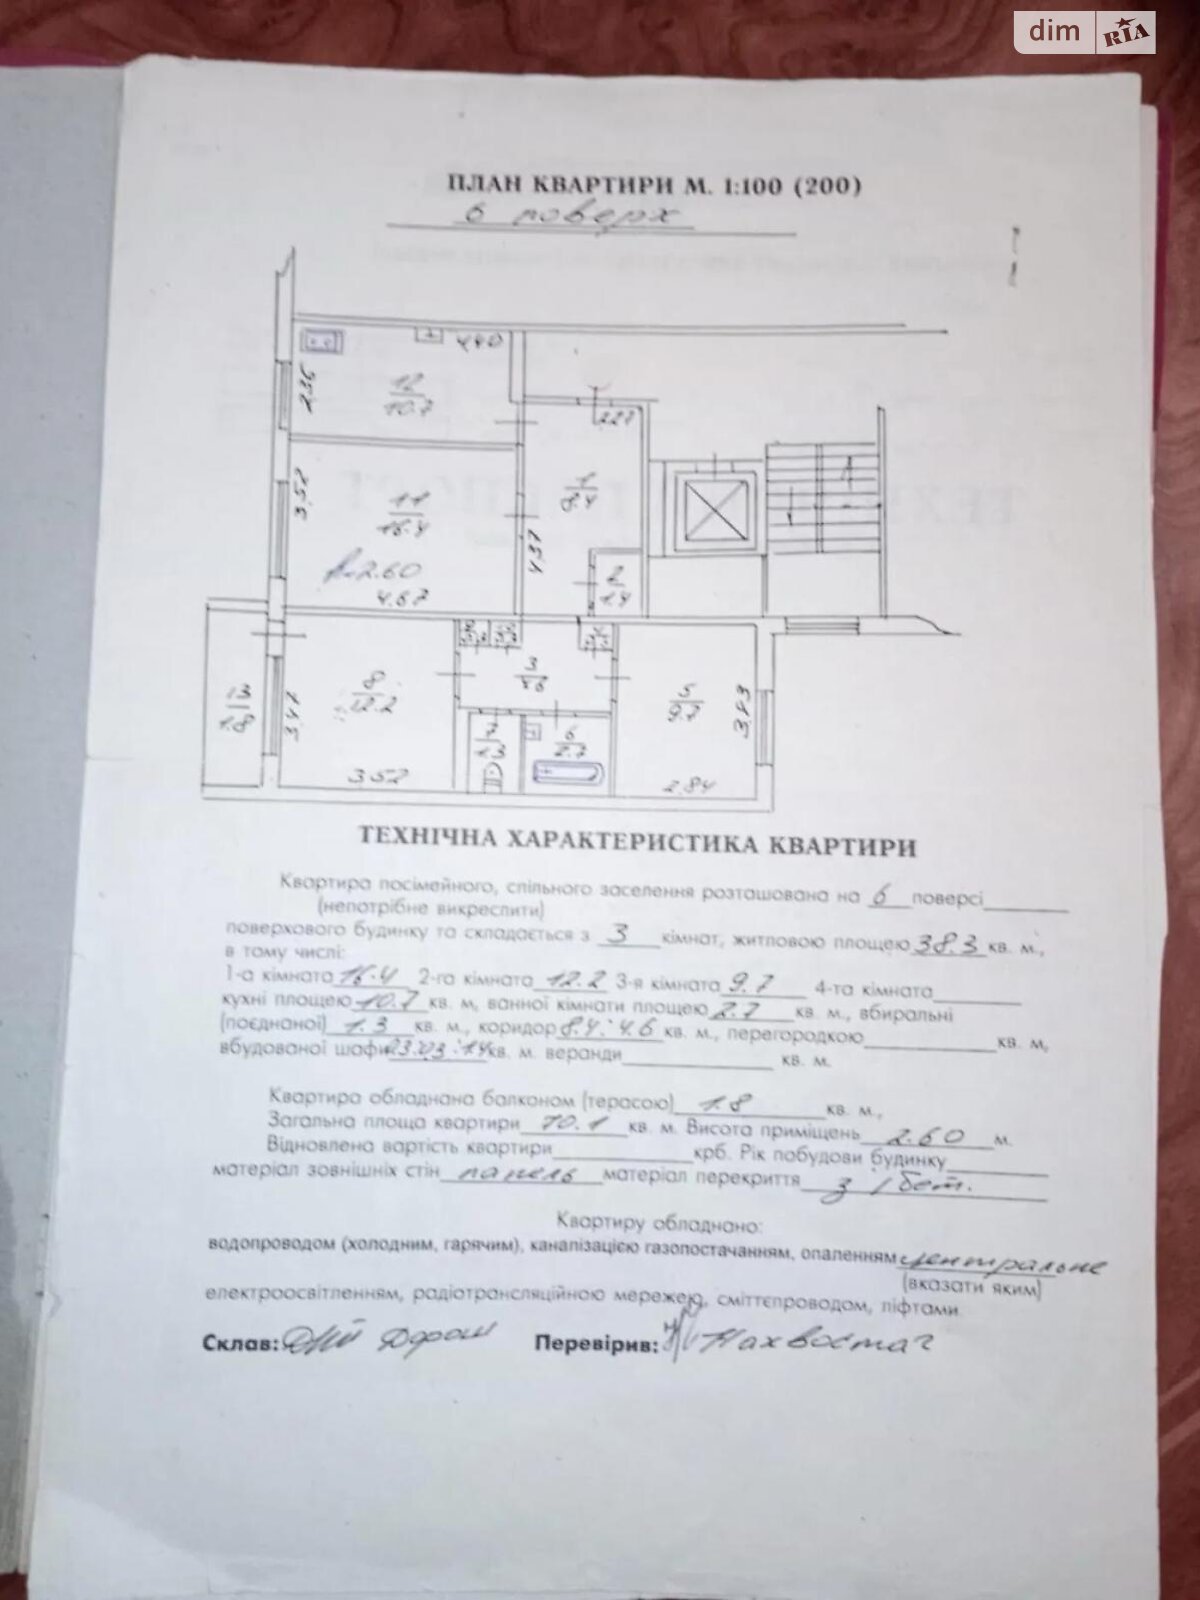 dim RIA
ПЛАН КВАРТИРИ М. 1:100 (200)
6 поверх
4.40
2.36
12
10.7
2.27
3.52
11
16.4
1
8.4
4.37
h-2.60
4.67
2
1.4
3
4.6
8
12.2
13
1.8
3.47
5
9.7
3.43
7
1.3
6
2.7
3.52
2.84
ТЕХНІЧНА ХАРАКТЕРИСТИКА КВАРТИРИ
Квартира посімейного, спільного заселення розташована на 6 поверсі
(непотрібне викреслити)
поверхового будинку та складається з 3 кімнат, житловою площею 38.3 кв. м.,
в тому числі:
1-а кімната 16.4 2-га кімната 12.2 3-я кімната 9.7 4-та кімната
кухні площею 10.7 кв. м, ванної кімнати площею 2.7 кв. м., вбиральні
(поєднаної) 1.3 кв. м., коридор 8.4; 4.6 кв. м., перегородкою кв. м,
вбудованої шафи кв. м. веранди кв. м.
Квартира обладнана балконом (терасою) 1.8 кв. м.,
Загальна площа квартири 70.1 кв. м. Висота приміщень 2.60 м.
Відновлена вартість квартири крб. Рік побудови будинку
матеріал зовнішніх стін панель матеріал перекриття з/бет.
Квартиру обладнано:
водопроводом (холодним, гарячим), каналізацією газопостачанням, опаленням центральне
(вказати яким)
електроосвітленням, радіотрансляційною мережею, сміттєпроводом, ліфтами.
Склав: Перевірив: